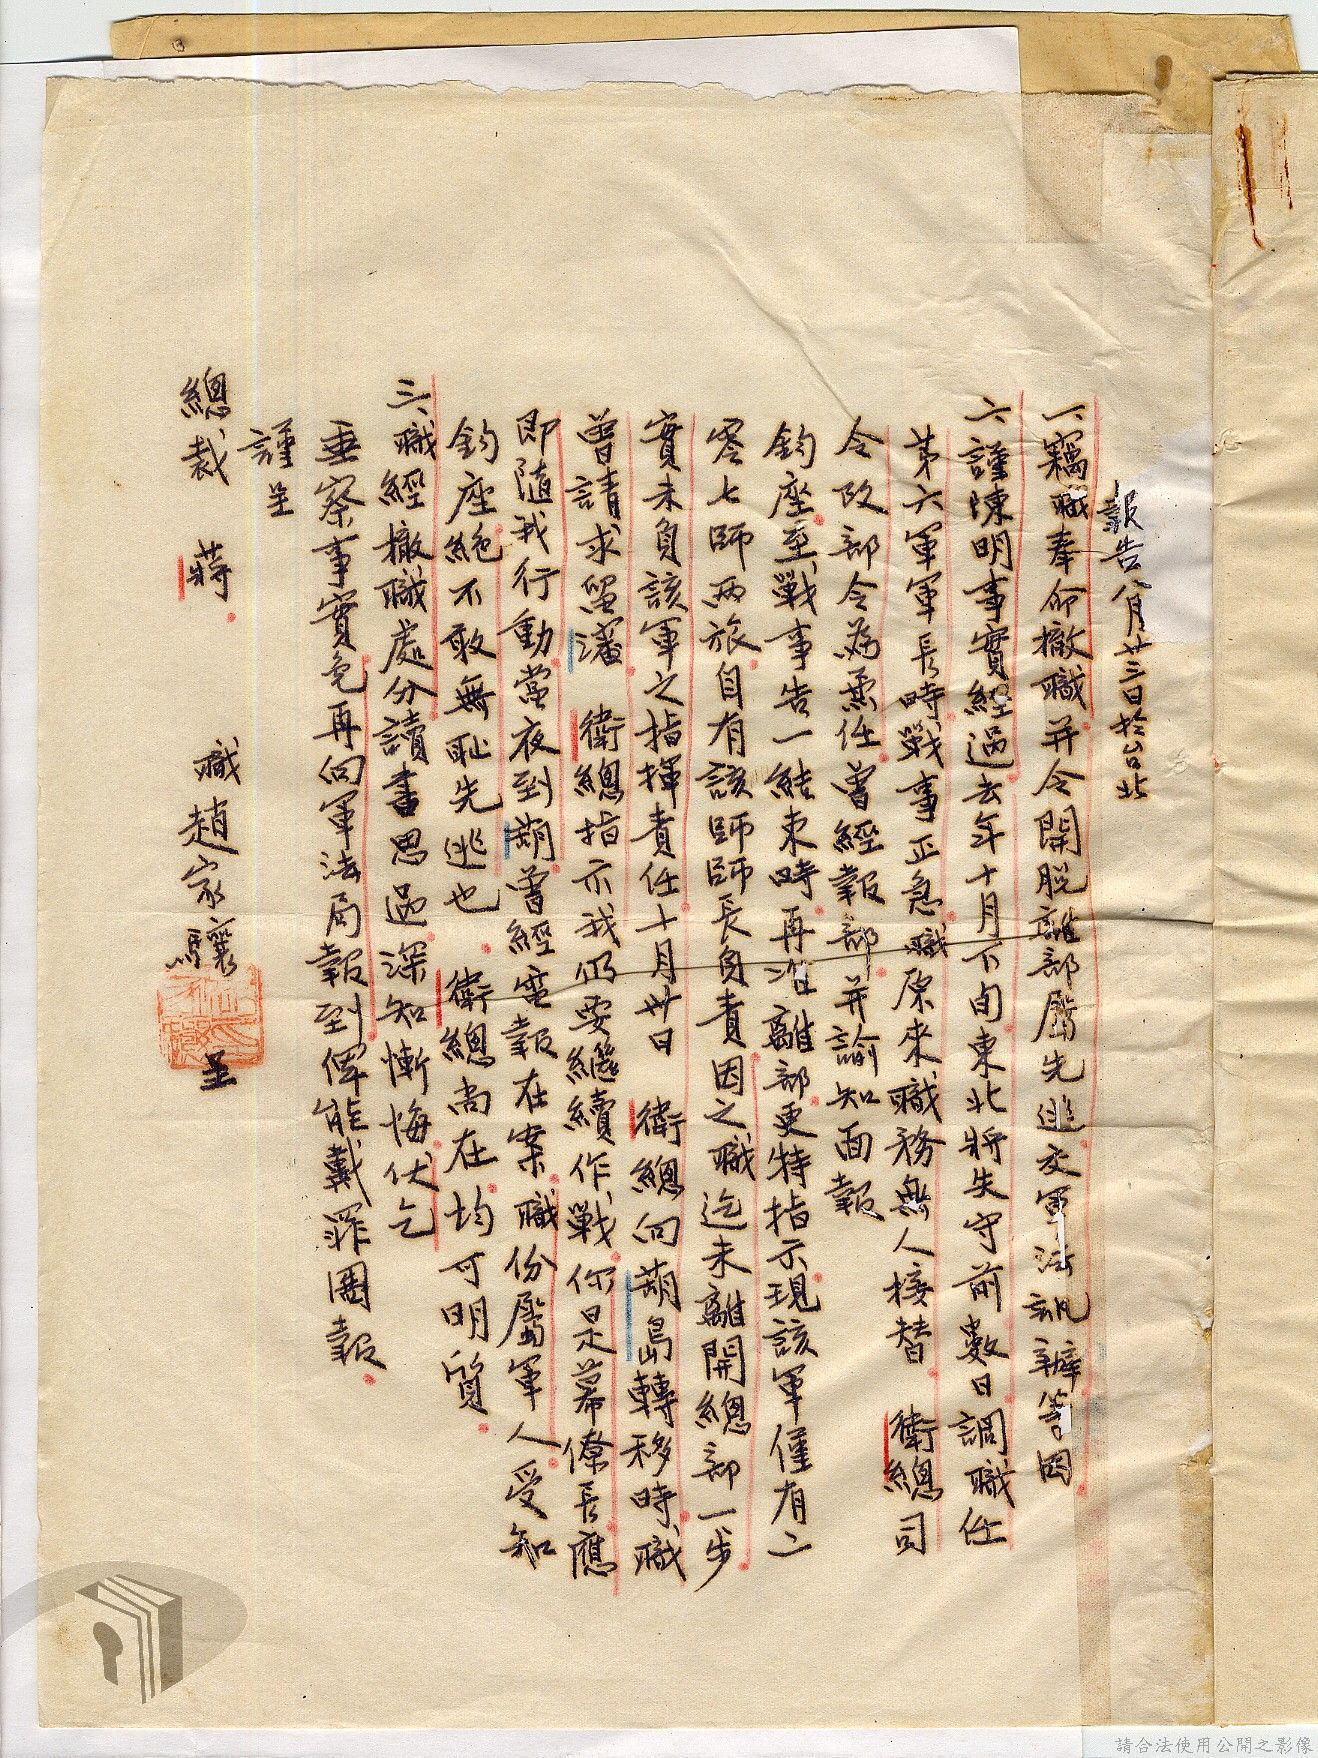 報告 八月廿三日於台北
一、竊職奉命撤職并令開脫離部屬先逃交軍法訊辦等因
二、謹陳明事實經過去年十月下旬東北將失守前數日調職任
第六軍軍長時戰事正急職原來職務無人接替 衛總司
令改部令為兼任曾經報部并諭知面報
鈞座至戰事告一結束時再准離部更特指示現該軍僅有二
零七師兩旅自有該師師長負責因之職迄未離開總部一步
實未負該軍之指揮責任十月卅日 衛總向葫島轉移時職
曾請求留瀋 衛總指示我仍要繼續作戰你是幕僚長應
即隨我行動當夜到葫曾經電報在案職份屬軍人受知
鈞座絕不敢無恥先逃也 衛總尚在均可明質
三、職經撤職處分讀書思過深知慚悔伏乞
垂察事實免再向軍法局報到俾能戴罪圖報
謹呈
總裁 蔣
職趙家驤 呈
請合法使用公開之影像